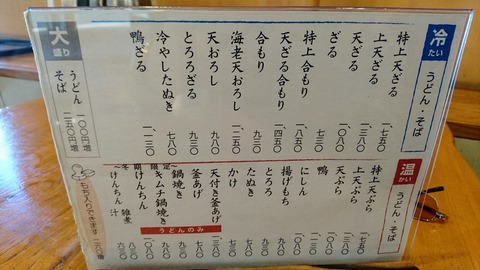 冷たい
うどん・そば
特上天ざる 一、七五〇
上天ざる 一、三八〇
天ざる 一、〇八〇
ざる 七三〇
特上合もり 一、八五〇
天ざる合もり 一、四五〇
合もり 九三〇
海老天おろし 一、二五〇
天おろし 九三〇
とろろざる 九三〇
冷やしたぬき 七八〇
鴨ざる 一、一三〇
大盛り
うどん 一〇〇円増
そば 二五〇円増
温かい
うどん・そば
特上天ぷら 一、七五〇
上天ぷら
天ぷら
鴨 一、一三〇
にしん
揚げもち
とろろ
たぬき
かけ
天付き釜あげ
釜あげ
鍋焼き
キムチ鍋焼き
けんちん
けんちん汁
雑煮
うどんのみ
もち入りできます